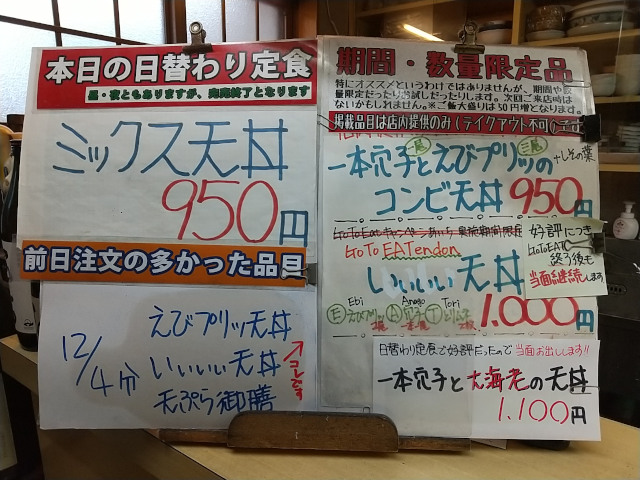 本日の日替わり定食
昼・夜ともありますが、完売終了となります
ミックス天丼
950円
前日注文の多かった品目
12/4分
えびプリッツ天丼
いいいい天丼
コレです
天ぷら御膳
期間・数量限定品
特にオススメというわけではありませんが、期間や数
量限定だったりお試しだったりします。次回ご来店時は
ないかもしれません。※ご飯大盛りは50円増となります。
掲載品目は店内提供のみ(テイクアウト不可)
一本穴子とえびプリッツの
二尾
+しその葉
コンビ天丼 950円
GoToEatキャンペーンあいち 実施期間限定
GoTo EATendon
いいいい天丼
Ebi Anago Tori
1.000円
好評につき
GoToEAT
終了後も
当面継続します
日替わり定食で好評だったので 当面お出しします!!
一本穴子と大海老の天丼
1.100円